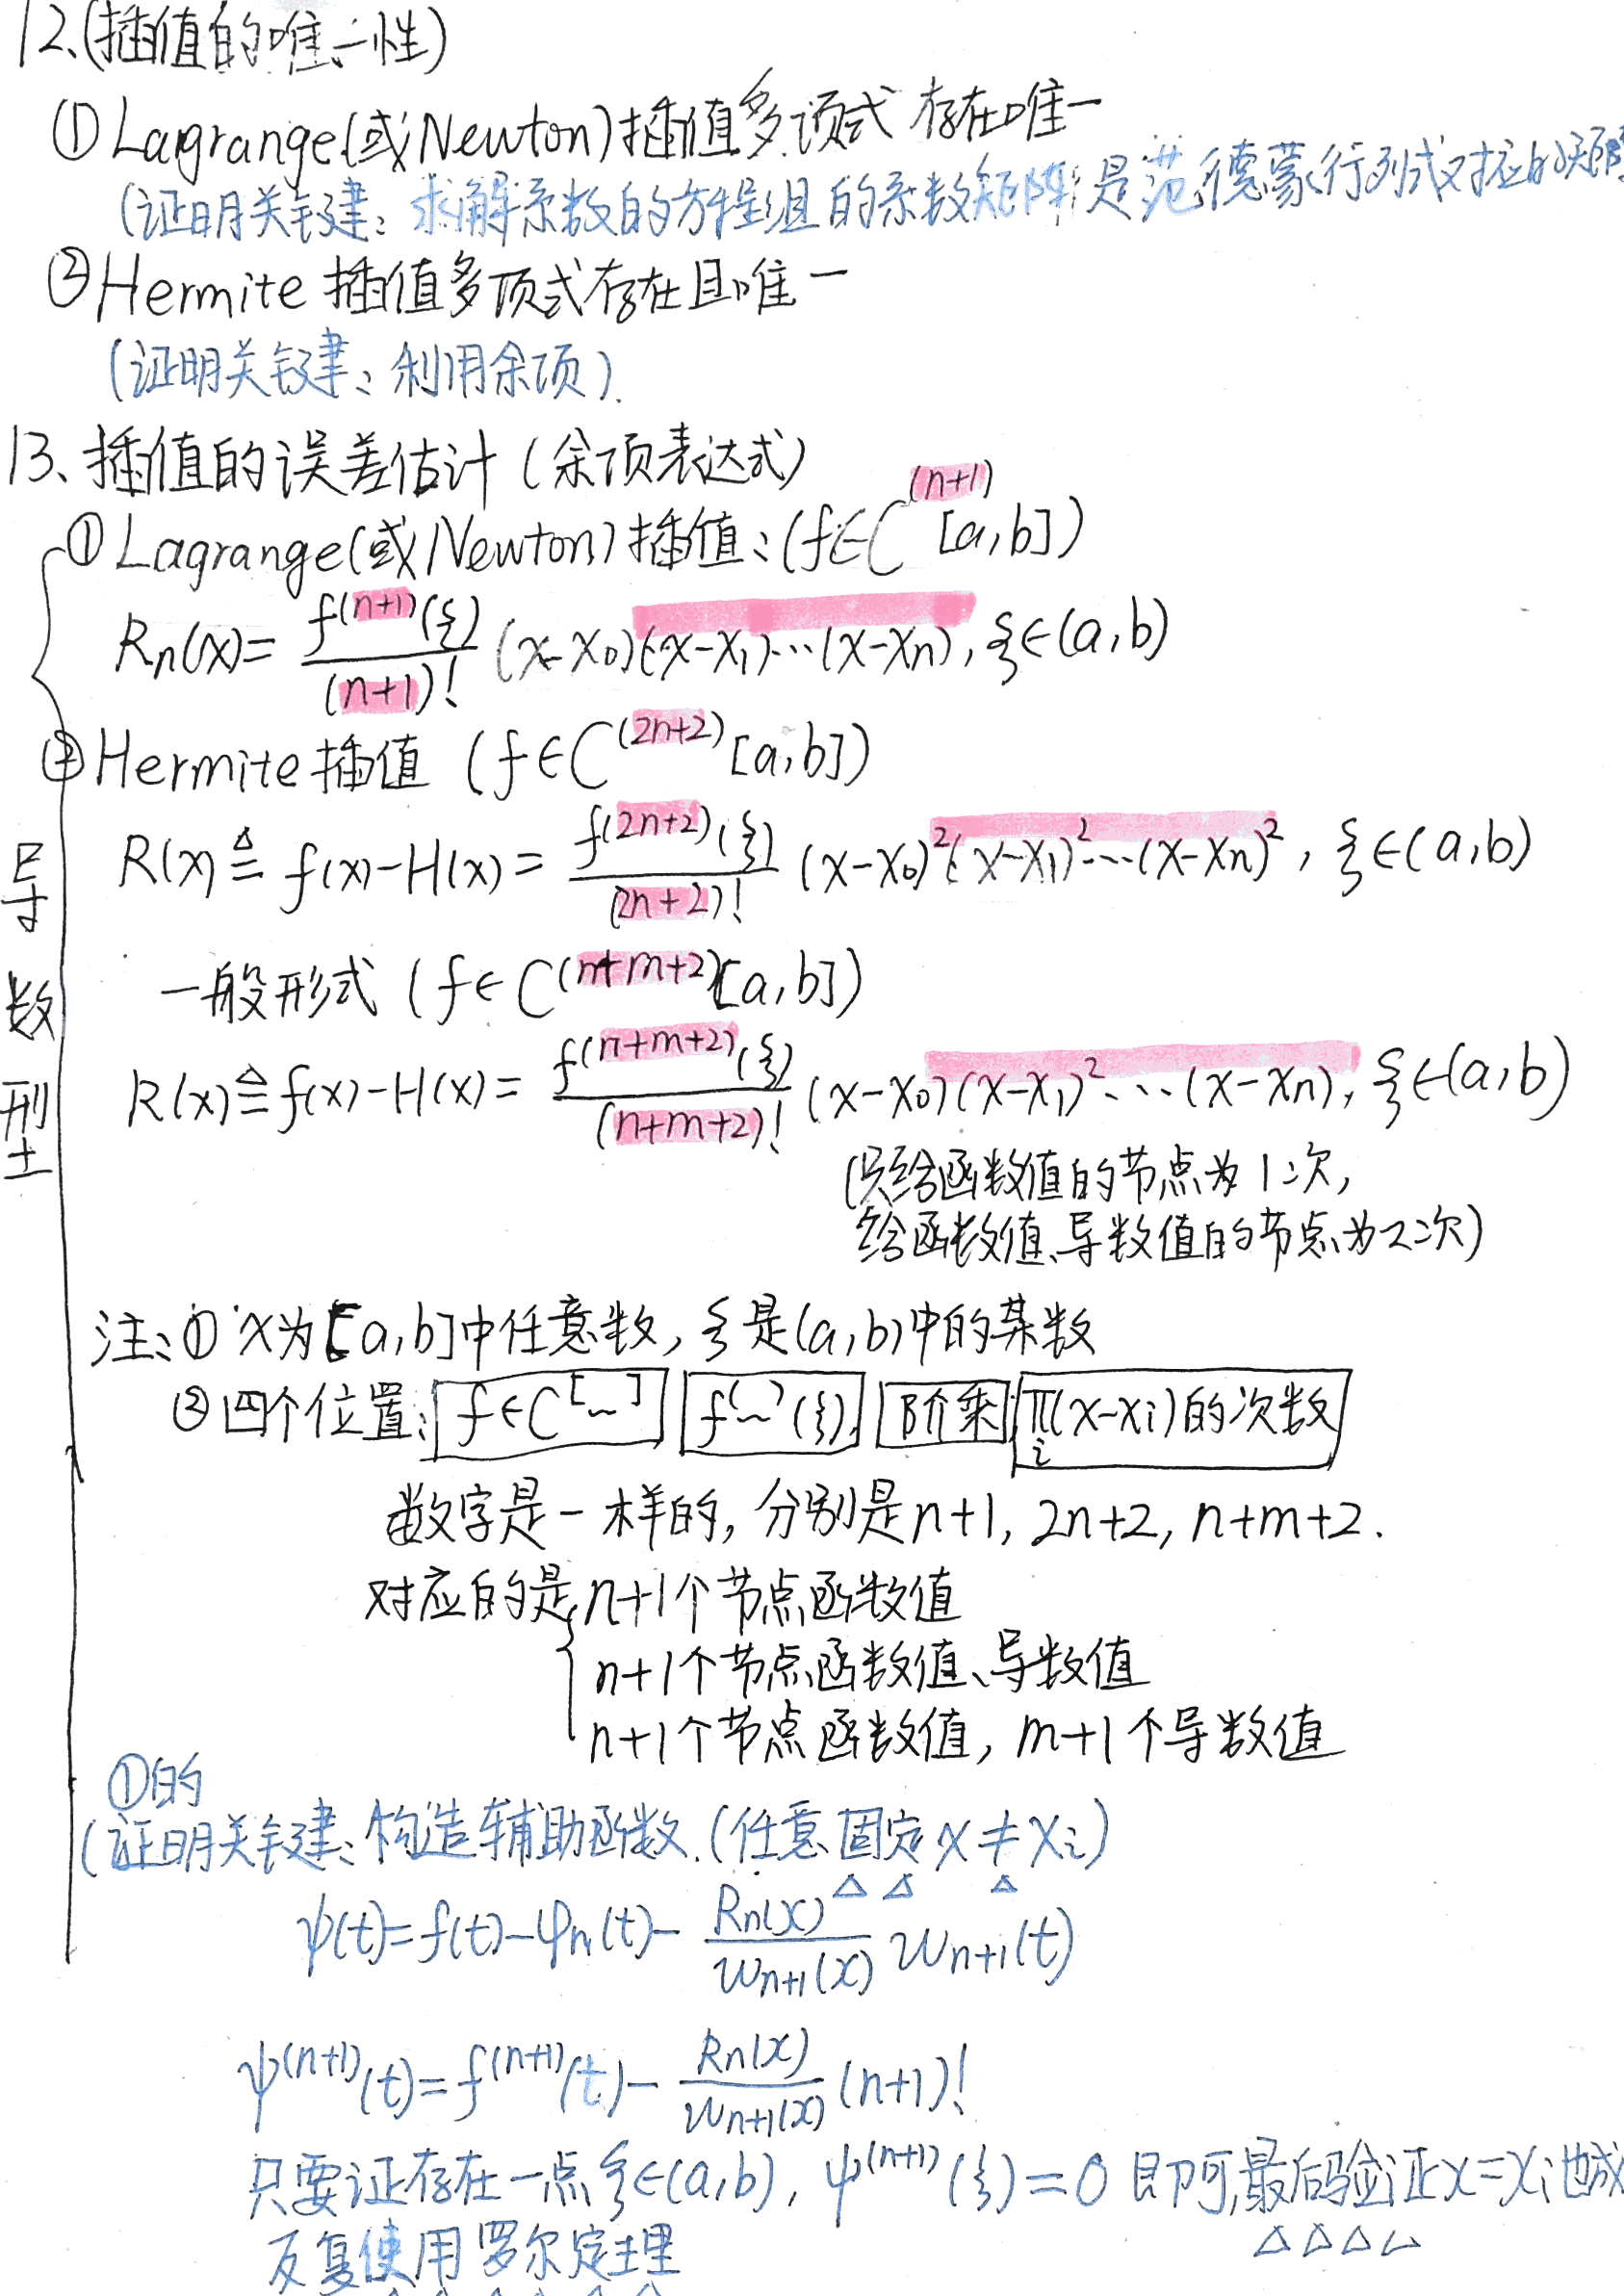 12、(插值的唯一性)
① Lagrange(或Newton)插值多项式 存在唯一
(证明关键: 求解系数的方程组的系数矩阵是范德蒙行列式对应的矩阵
② Hermite 插值多项式存在且唯一
(证明关键: 利用余项).
13、插值的误差估计 (余项表达式)
① Lagrange(或Newton)插值: (f∈C^(n+1)[a,b])
Rn(x)= f^(n+1)(ξ)/(n+1)! (x-x₀)(x-x₁)…(x-xn), ξ∈(a,b)
② Hermite 插值 (f∈C^(2n+2)[a,b])
R(x)≜f(x)-H(x)= f^(2n+2)(ξ)/(2n+2)! (x-x₀)²(x-x₁)²…(x-xn)², ξ∈(a,b)
一般形式 (f∈C^(n+m+2)[a,b])
R(x)≜f(x)-H(x)= f^(n+m+2)(ξ)/(n+m+2)! (x-x₀)(x-x₁)²…(x-xn), ξ∈(a,b)
(只给函数值的节点为1次,
给函数值、导数值的节点为2次)
导数型
注: ① x为[a,b]中任意数, ξ是(a,b)中的某数
② 四个位置: f∈C^[~] f^(~)(ξ) 阶乘 π_i(x-xi)的次数
数字是一样的, 分别是n+1, 2n+2, n+m+2.
对应的是{n+1个节点函数值
n+1个节点函数值、导数值
n+1个节点函数值, m+1个导数值
①的
(证明关键: 构造辅助函数.(任意固定x≠xi)
△ △ △
ψ(t)=f(t)-φn(t)- Rn(x)/wn+1(x) wn+1(t)
ψ^(n+1)(t)=f^(n+1)(t)- Rn(x)/wn+1(x) (n+1)!
只要证存在一点ξ∈(a,b), ψ^(n+1)(ξ)=0 即可,最后验证x=xi也成
△ △ △ △
反复使用罗尔定理